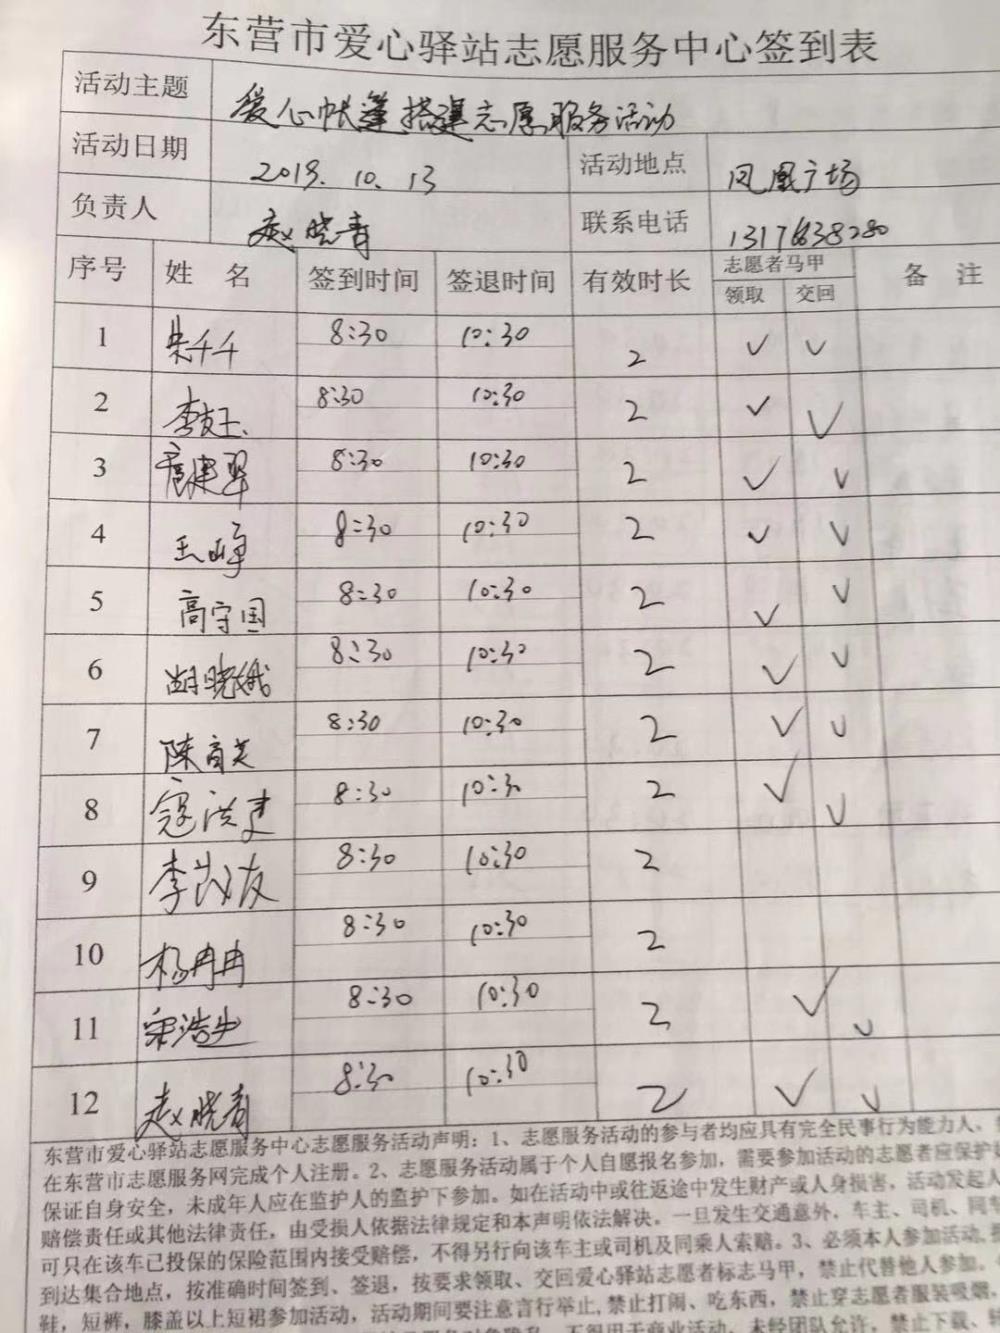 东营市爱心驿站志愿服务中心签到表
活动主题 爱心帐篷搭建志愿服务活动
活动日期 2019.10.13 活动地点 凤凰广场
负责人 赵晓青 联系电话
序号 姓 名 签到时间 签退时间 有效时长 志愿者马甲 备 注
领取 交回
1 朱千千 8:30 10:30 2 ✓ ✓
2 8:30 10:30 2 ✓ ✓
3 8:30 10:30 2 ✓ ✓
4 王峥 8:30 10:30 2 ✓ ✓
5 高守国 8:30 10:30 2 ✓ ✓
6 胡晓娥 8:30 10:30 2 ✓ ✓
7 陈育芝 8:30 10:30 2 ✓ ✓
8 寇洪建 8:30 10:30 2 ✓ ✓
9 李茂友 8:30 10:30 2
10 杨冉冉 8:30 10:30 2
11 8:30 10:30 2 ✓ ✓
12 赵晓青 8:30 10:30 2 ✓ ✓
东营市爱心驿站志愿服务中心志愿服务活动声明：1、志愿服务活动的参与者均应具有完全民事行为能力人、
在东营市志愿服务网完成个人注册。2、志愿服务活动属于个人自愿报名参加，需要参加活动的志愿者应保护好
保证自身安全，未成年人应在监护人的监护下参加。如在活动中或往返途中发生财产或人身损害，活动发起人
赔偿责任或其他法律责任，由受损人依据法律规定和本声明依法解决。一旦发生交通意外，车主、司机、同车
可只在该车已投保的保险范围内接受赔偿，不得另行向该车主或司机及同乘人索赔。3、必须本人参加活动、
到达集合地点，按准确时间签到、签退，按要求领取、交回爱心驿站志愿者标志马甲，禁止代替他人参加。
鞋，短裤，膝盖以上短裙参加活动，活动期间要注意言行举止,禁止打闹、吃东西，禁止穿志愿者服装吸烟，
不得用于商业活动。未经团队允许，禁止下载、转